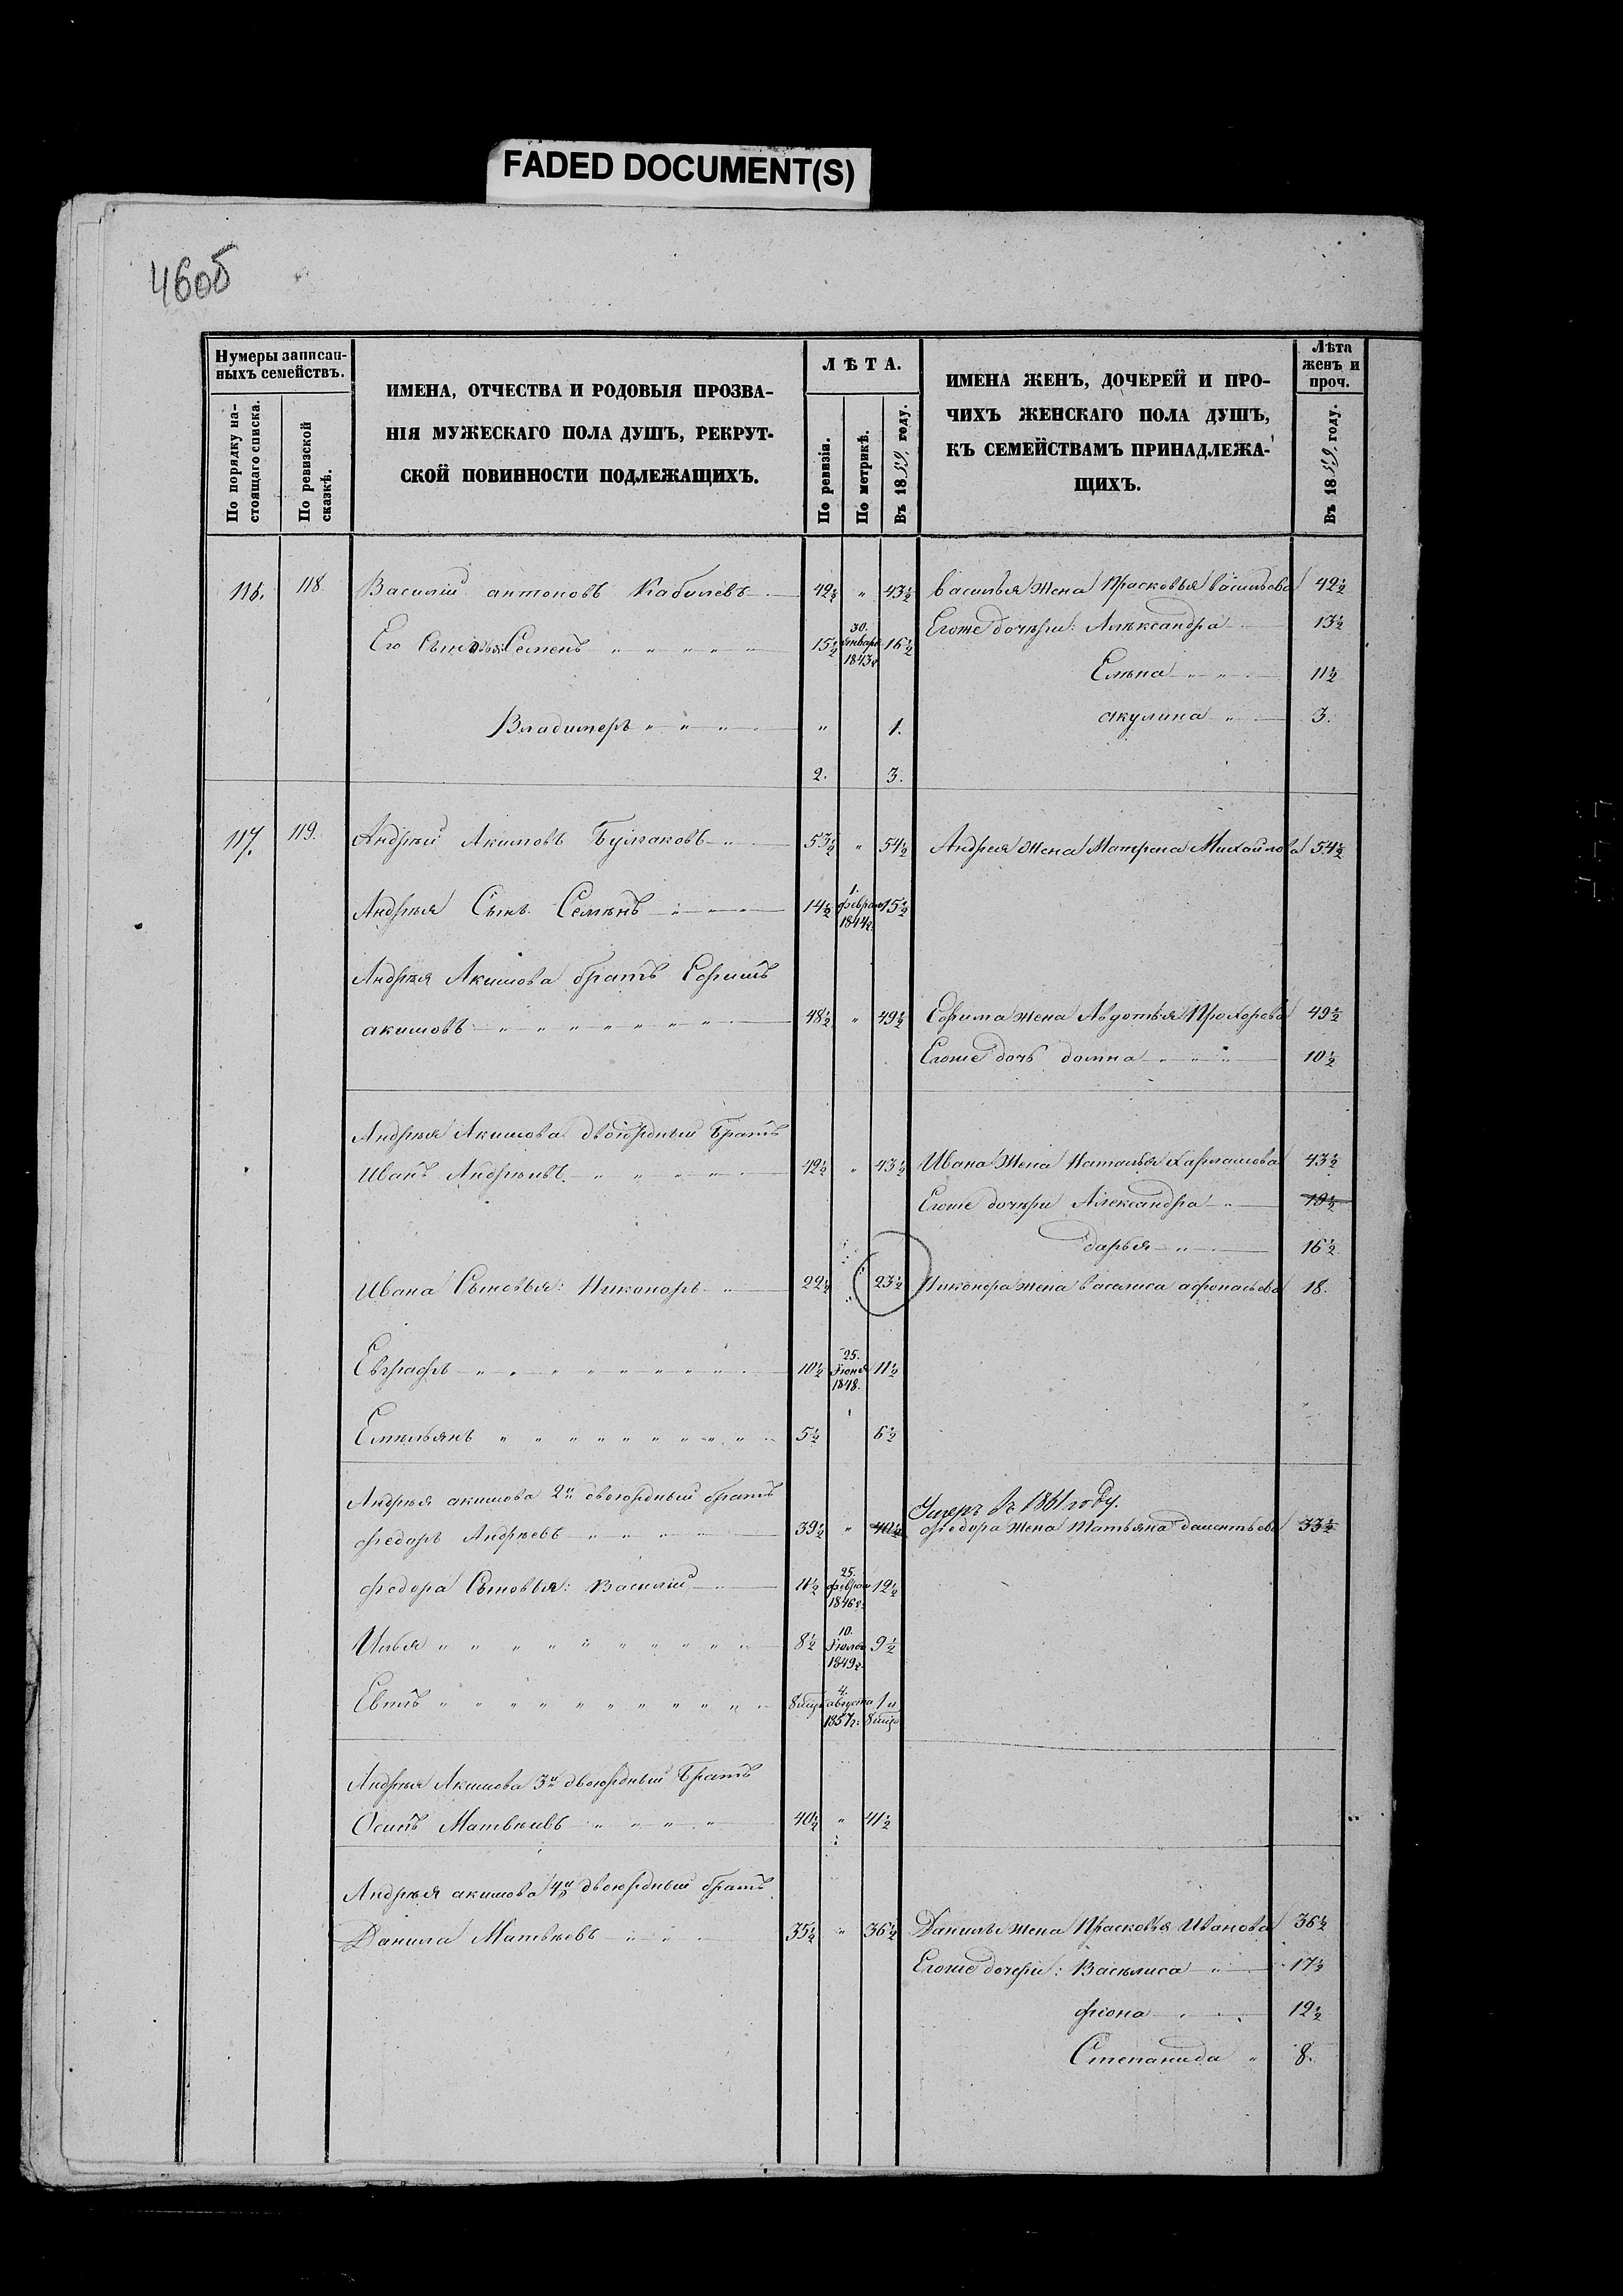 FADED DOCUMENT(S)
460б
Нумеры записан-
ныхъ семействъ.
По порядку на-
стоящаго списка.
По ревизской
сказкѣ.
ИМЕНА, ОТЧЕСТВА И РОДОВЫЯ ПРОЗВА-
НІЯ МУЖЕСКАГО ПОЛА ДУШЪ, РЕКРУТ-
СКОЙ ПОВИННОСТИ ПОДЛЕЖАЩИХЪ.
ЛѢТА.
По ревизіи.
По метрикѣ.
Въ 1859 году.
ИМЕНА ЖЕНЪ, ДОЧЕРЕЙ И ПРО-
ЧИХЪ ЖЕНСКАГО ПОЛА ДУШЪ,
КЪ СЕМЕЙСТВАМЪ ПРИНАДЛЕЖА-
ЩИХЪ.
Лѣта
женъ и
проч.
Въ 1859 году.
116. 118. Василий антоновъ Кабилевъ 42½ " 43½ Василья жена Прасковья васильева 42½
Его Сыновья: Семенъ " " " " " 15½ 30. Января 1843г. 16½ Егоже дочьри: Александра 13½
Елѣна " " 11½
Владимеръ " " " " 1. акулина " 3.
2. 3.
117. 119. Андрѣй Акимовъ Булгаковъ " 53½ " 54½ Андрея жена Матрена Михайлова 54½
Андрѣя Сынъ Семѣнъ 14½ 1. февраля 1844г. 15½
Андрѣя Акимова братъ Ефимъ
акимовъ " " " " " " " 48½ " 49½ Ефима жена Авдотья Прохорова 49½
Егоже дочь домна " " " 10½
Андрѣя Акимова двоюрдный братъ
Иванъ Андрѣивъ " " " " 42½ " 43½ Ивана жена Наталья Харламова 43½
Егоже дочьри Александра " 19½
дарья " 16½
Ивана Сыновья: Никоноръ " 22½ 23½ Никонора жена василиса афонасьева 18.
Евграфъ " " " " " " " " 10½ 25. Іюня 1848. 11½
Емельянъ " " " " " " " " 5½ 6½
Андрѣя акимова 2й двоюрдный братъ
Умеръ въ 1861 году.
федоръ Андрѣевъ " " " " 39½ " 40½ федора жена Татьяна даментьева 33½
федора Сыновья: Василий " 11½ 25. февраля 1846г. 12½
Илья " " " " " " " " " 8½ 10. Іюля 1849г. 9½
Евтѣ " " " " " " " " " " 8мцъ 4. августа 1857г. 1 и 8мцъ
Андрѣя Акимова 3й двоюрдный братъ
Осипъ Матвѣивъ " " " " 40½ " 41½
Андрѣя акимова 4й двоюрдный братъ
Данила Матвѣевъ " " 35½ " 36½ Данилы жена Прасковья Иванова 36½
Егоже дочери: Василиса " 17½
фіона 12½
Степанида " 8.